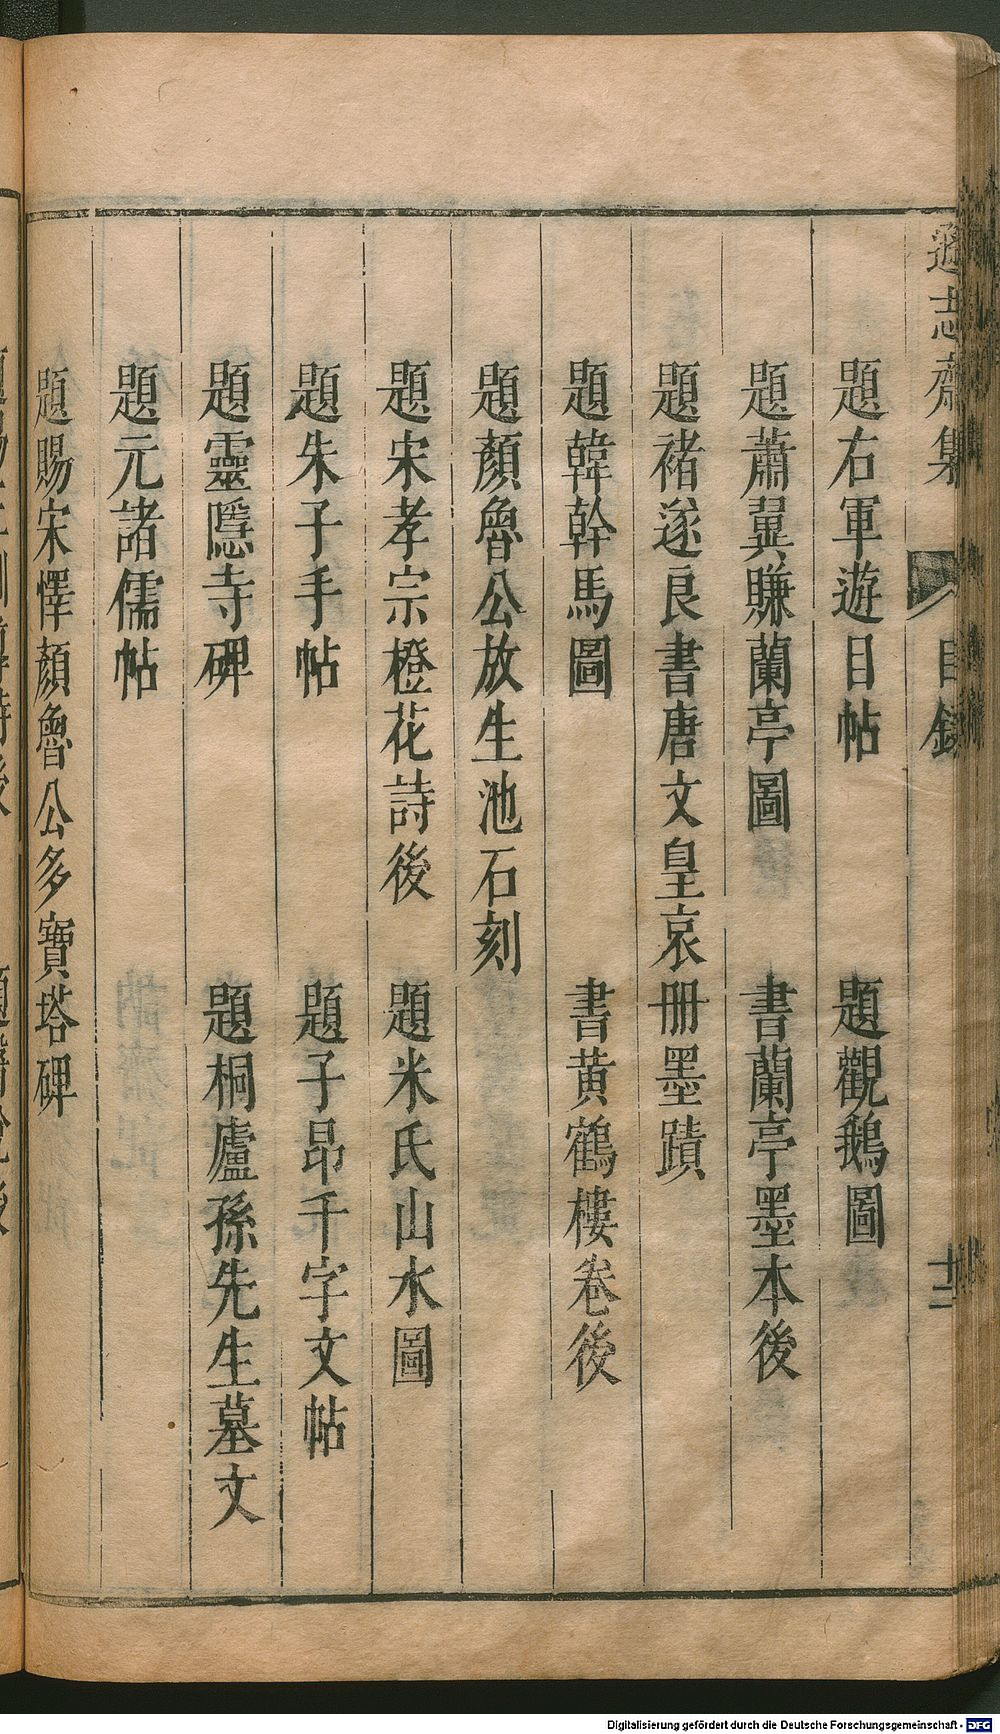 遜志齋集
目錄
十二
題右軍遊目帖
題觀鵝圖
題蕭翼賺蘭亭圖
書蘭亭墨本後
題褚遂良書唐文皇哀册墨蹟
題韓幹馬圖
書黄鶴樓卷後
題顏魯公放生池石刻
題宋孝宗橙花詩後
題米氏山水圖
題朱子手帖
題子昂千字文帖
題靈隱寺碑
題桐廬孫先生墓文
題元諸儒帖
題賜宋懌顏魯公多寶塔碑
Digitalisierung gefördert durch die Deutsche Forschungsgemeinschaft - DFG